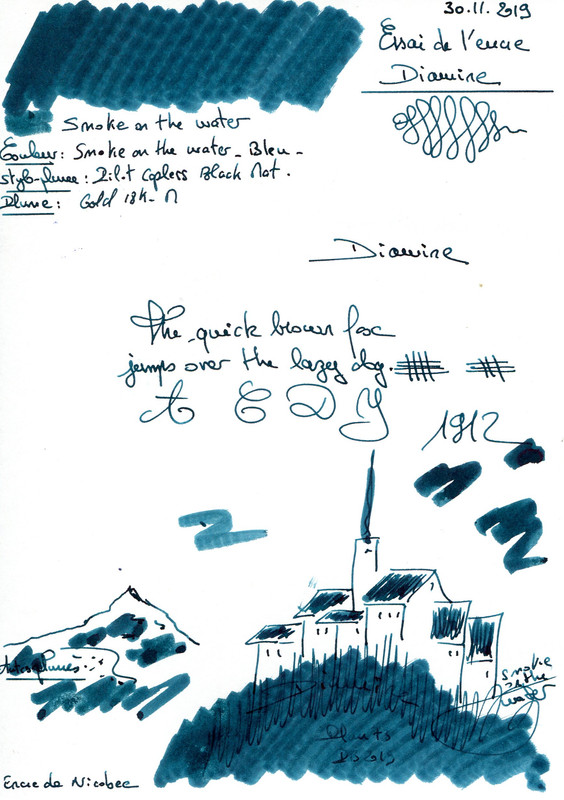 30.11.2019
Essai de l'encre
Diamine
Smoke on the water
Couleur: Smoke on the water - Bleu -
Stylo-plume: Pilot Capless Black Mat.
Plume: Gold 18k - M
Diamine
The quick brown fox
jumps over the lazy dog.
A E D Y
1912
Smoke
on the
water
Encre de Nicobec